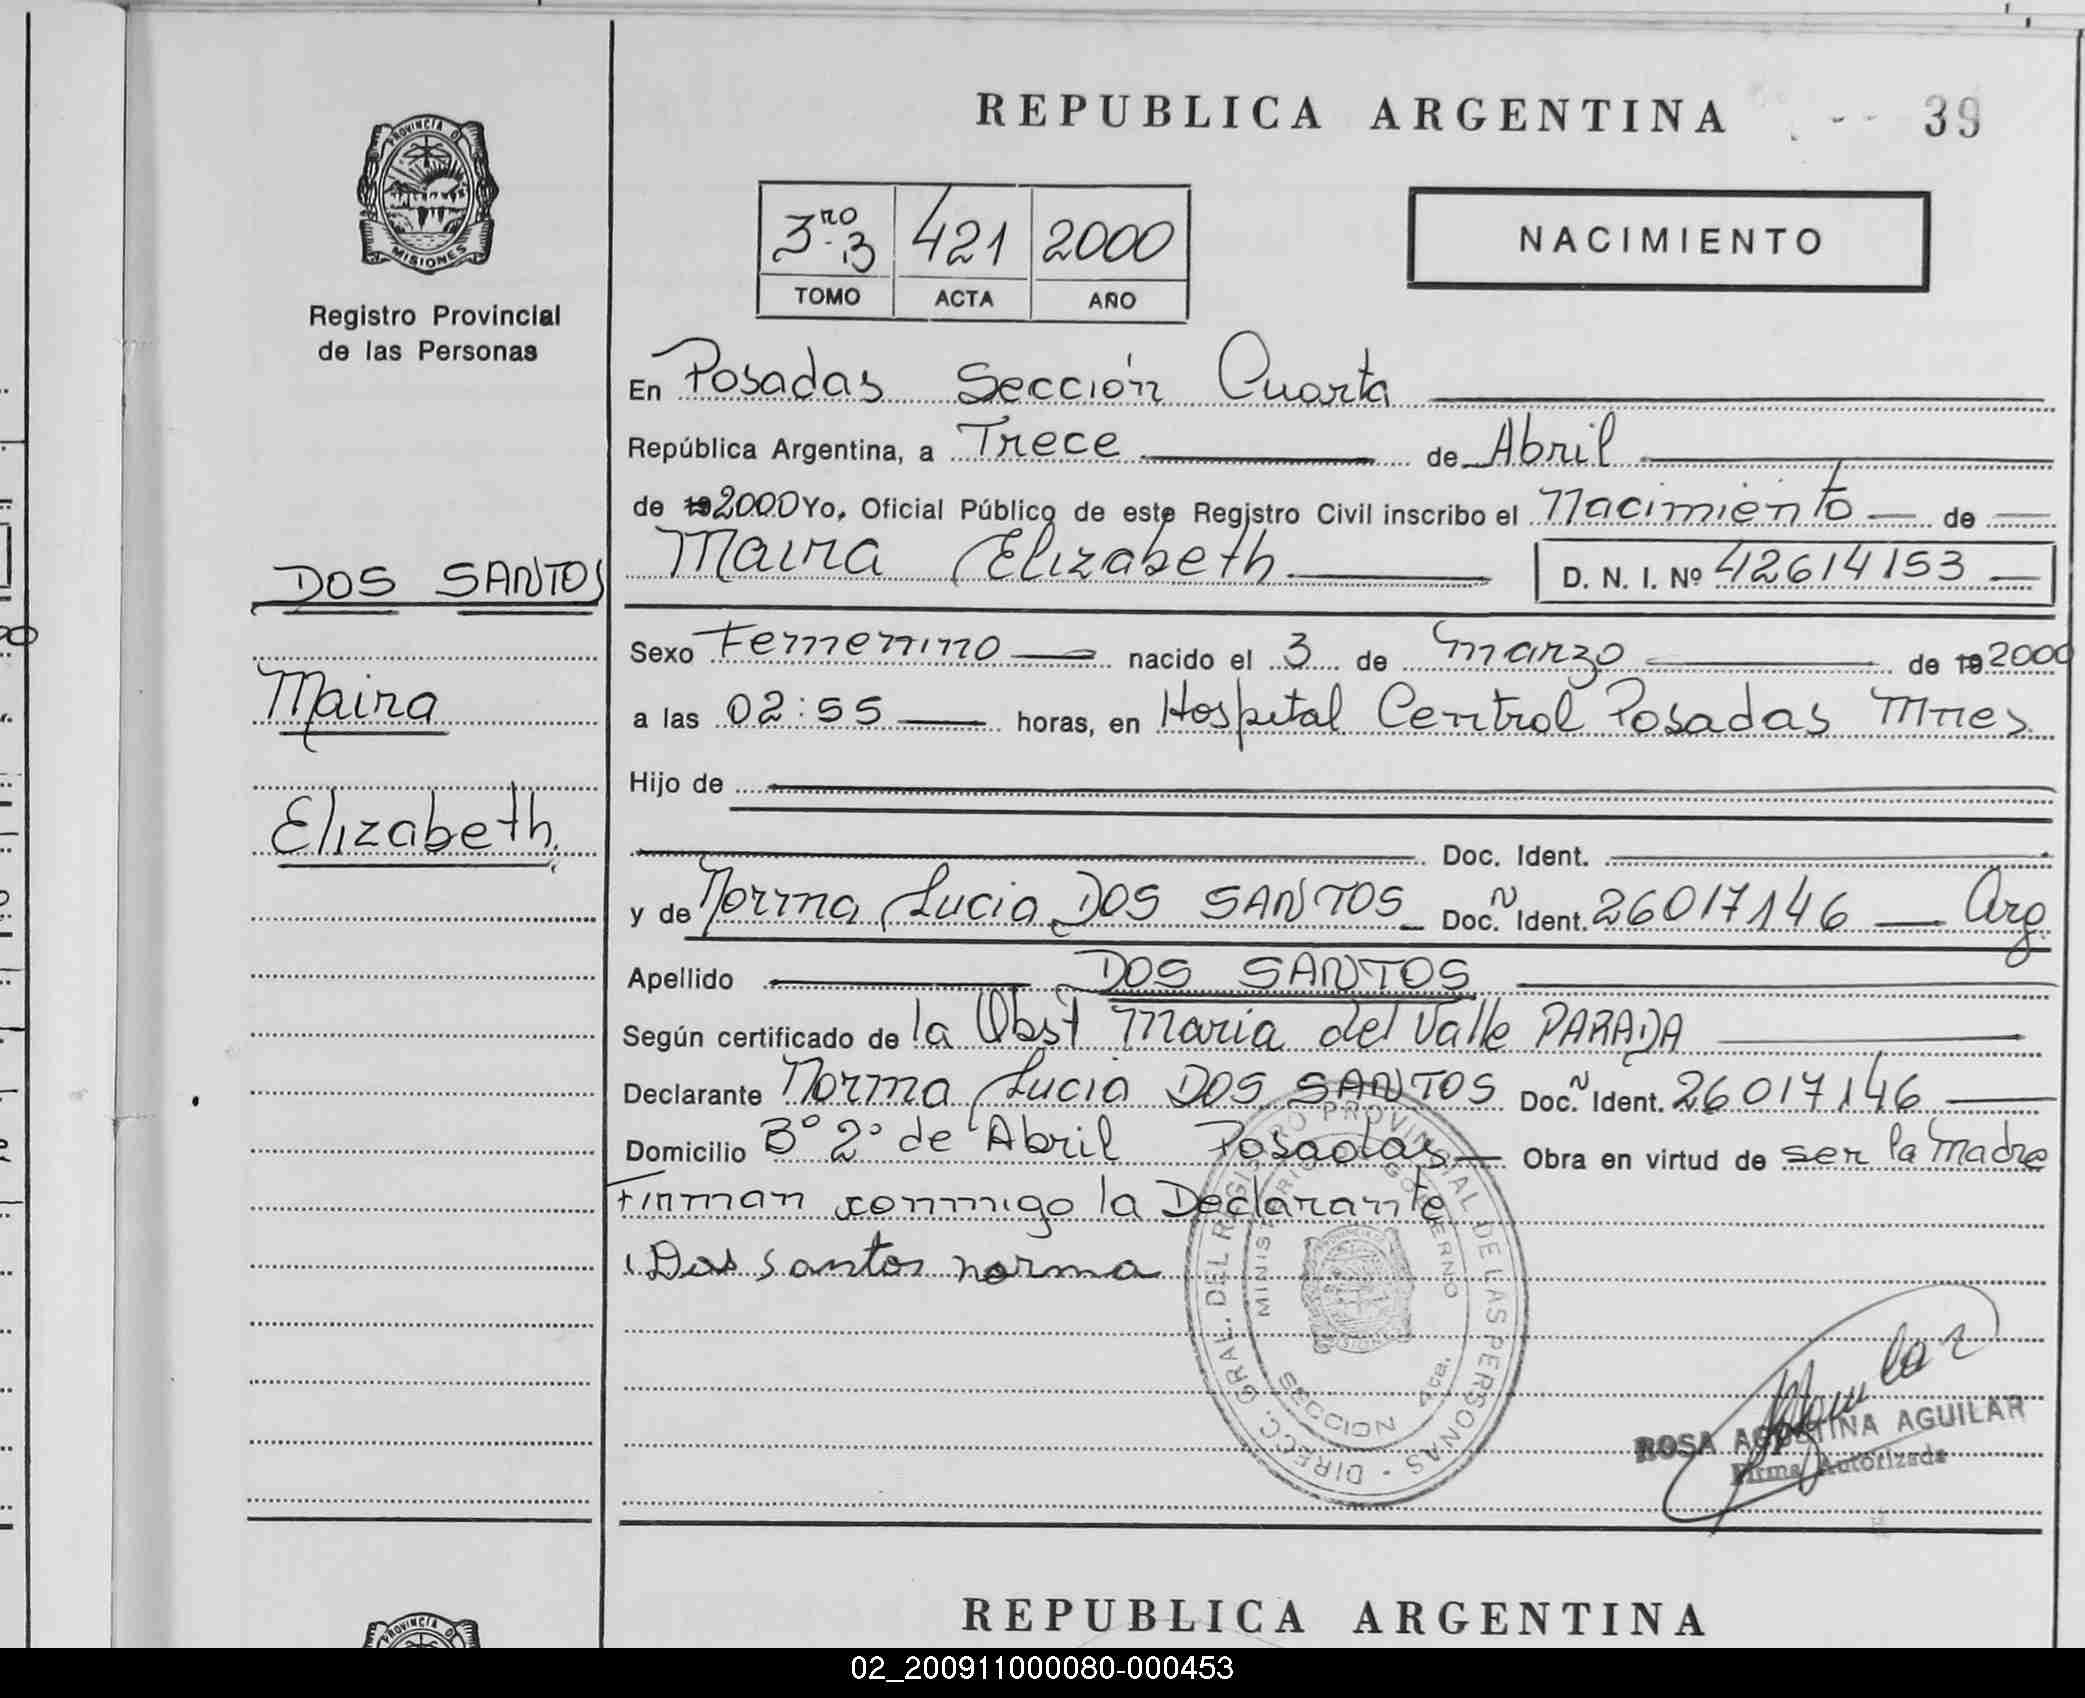 REPUBLICA ARGENTINA
39
PROVINCIA D
MISIONES
Registro Provincial
de las Personas
3ro B 421 2000
TOMO ACTA AÑO
NACIMIENTO
En Posadas Sección Cuarta
República Argentina, a Trece de Abril
de 19 2000 Yo, Oficial Público de este Registro Civil inscribo el Nacimiento de
DOS SANTOS
Maira Elizabeth D. N. I. Nº 42614153
Sexo Femenino nacido el 3 de Marzo de 19 2000
Maira
a las 02:55 horas, en Hospital Central Posadas Mnes
Hijo de
Elizabeth
Doc. Ident.
y de Norma Lucia DOS SANTOS Doc. Ident. 26017146 Arg.
Apellido DOS SANTOS
Según certificado de la Obst Maria del Valle PARADA
Declarante Norma Lucia DOS SANTOS Doc. Ident. 26017146
Domicilio Bº 2º de Abril Posadas Obra en virtud de ser la Madre
Firman conmigo la Declarante
Dos santos norma
DIRECC. GRAL. DEL REGISTRO PROVINCIAL DE LAS PERSONAS
MINISTERIO GOBIERNO
SECCION 4ta.
Aguilar
ROSA AGUSTINA AGUILAR
Firma Autorizada
REPUBLICA ARGENTINA
PROVINCIA D
02_200911000080-000453